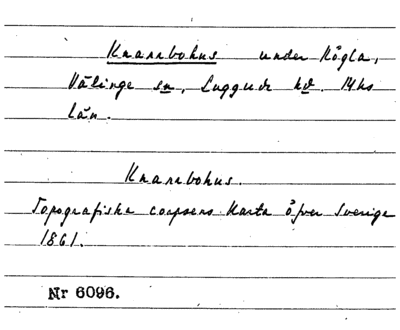 Knarrbohus under Rögla,
Välinge sn, Luggude hd. Mhs
län.
Knarrbohus.
Topografiska corpsens Karta öfver Sverige
1861.
Nr 6096.